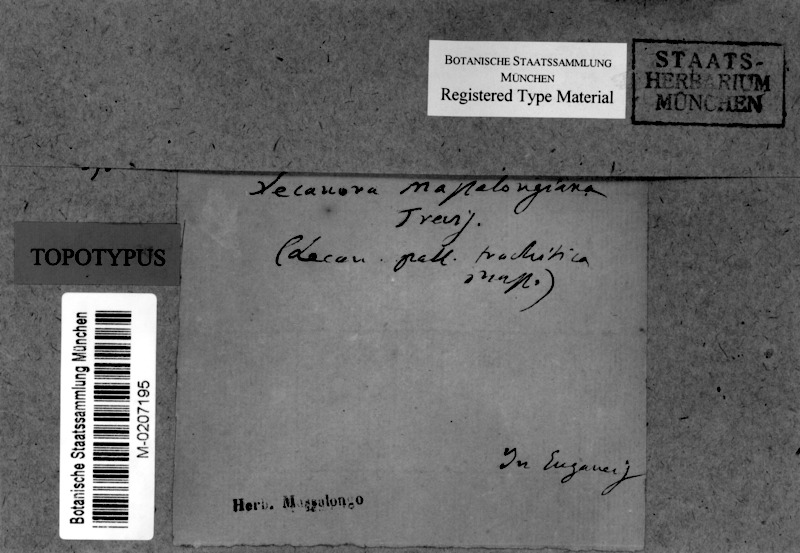 BOTANISCHE STAATSSAMMLUNG
MÜNCHEN
Registered Type Material
STAATS-
HERBARIUM
MÜNCHEN
Lecanora Massalongiana
Trevis.
(Lecan. pall. trachitica
Mass.)
TOPOTYPUS
Botanische Staatssammlung München
M-0207195
In Euganeis
Herb. Massalongo